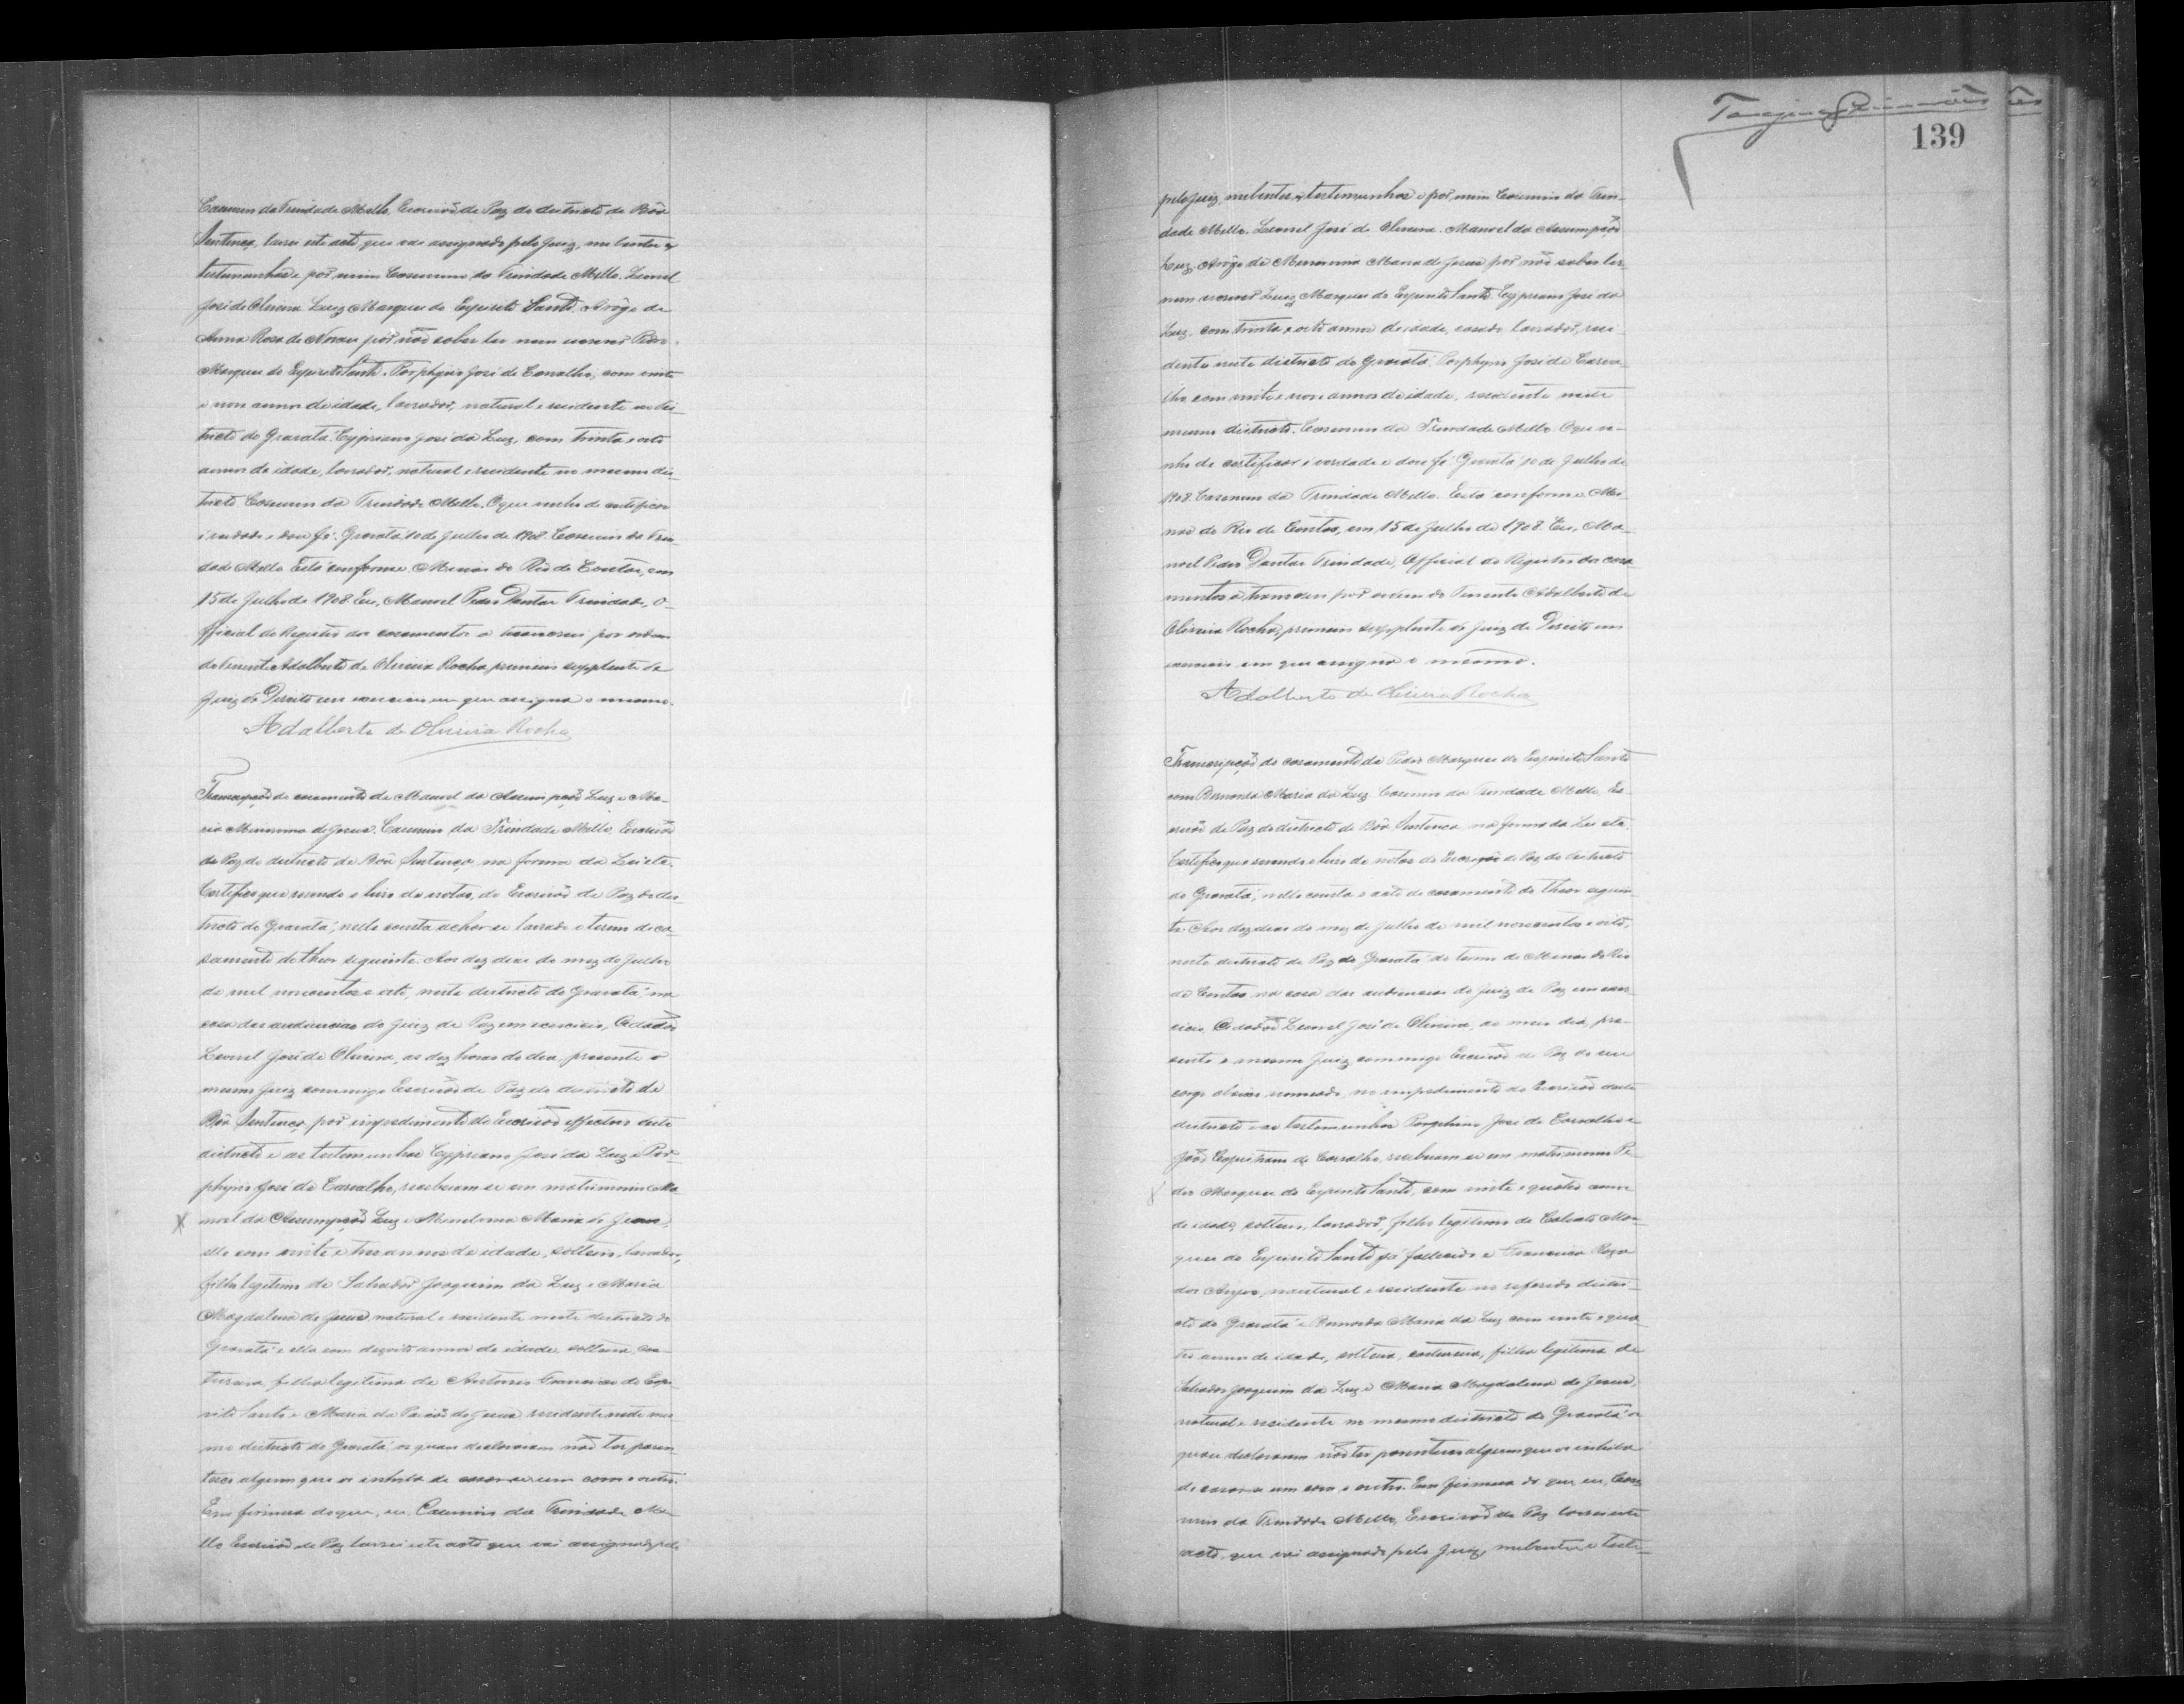 Casimiro da Trindade Mello, Escrivão de Paz do districto de Bôa
Sentença, lavrei este acto que vai assignado pelo Juiz, nubentes e
testemunhas e por mim Casimiro da Trindade Mello. Leonel
José de Oliveira. Luiz Marques do Espirito Santo. Arôgo de
Anna Rosa de Novaes por não saber ler nem escrever Pedro
Marques do Espirito Santo. Porphyrio José de Carvalho, com vinte
e nove annos de idade, lavrador, natural e residente no dis-
tricto do Gravatá. Cypriano José da Luz, com trinta e oito
annos de idade, lavrador, natural e residente no mesmo dis-
tricto Casimiro da Trindade Mello. O que venho de certificar
é verdade e dou fé. Gravatá 10 de Julho de 1908. Casimiro da Trin-
dade Mello. Está conforme. Minas do Rio de Contas, em
15 de Julho de 1908. Eu, Manoel Pedro Dantas Trindade, O-
fficial do Registro dos casamentos o transcrevi por ordem
do Tenente Adalberto de Oliveira Rocha, primeiro supplente do
Juiz de Direito em exercicio em que assigna o mesmo.
Adalberto de Oliveira Rocha
Transcripção do casamento de Manoel da Assumpção Luz e Ma-
ria de Jesus. Casimiro da Trindade Mello, Escrivão
de Paz do districto de Bôa Sentença, na forma da Lei etc.
Certifico que revendo o livro de notas, do Escrivão de Paz do dis-
tricto do Gravatá, nelle consta achar-se lavrado o termo de ca-
samento do theor seguinte. Aos dez dias do mez de Julho
de mil novecentos e oito, neste districto do Gravatá, na
casa das audiencias do Juiz de Paz em exercicio, Cidadão
Leonel José de Oliveira, as dez horas do dia, presente o
mesmo Juiz commigo Escrivão de Paz do districto de
Bôa Sentença, por impedimento do Escrivão effectivo deste
districto e as testemunhas Cypriano José da Luz e Por-
phyrio José de Carvalho, receberam-se em matrimonio Ma-
noel da Assumpção Luz e Maria de Jesus,
elle com vinte e tres annos de idade, solteiro, lavrador,
filho legitimo de Salvador Joaquim da Luz e Maria
Magdalena de Jesus, natural e residente neste districto do
Gravatá e ella com dezoito annos de idade, solteira, cos-
tureira, filha legitima de Antonio Francisco do Espi-
rito Santo e Maria da de Jesus, residente neste mes-
mo districto do Gravatá, os quaes declararam não ter paren-
tesco algum que os inhiba de casar-se um com o outro.
Em firmeza do que, eu, Casimiro da Trindade Me-
llo Escrivão de Paz lavrei este acto que vai assignado pelo
139
pelo Juiz, nubentes, e testemunhas e por mim Casimiro da Trin-
dade Mello. Leonel José de Oliveira. Manoel da Assumpção
Luz. Arôgo de Maria de Jesus por não saber ler
nem escrever Luiz Marques do Espirito Santo. Cypriano José da
Luz, com trinta e oito annos de idade, casado, lavrador, resi-
dente neste districto do Gravatá. Porphyrio José de Carva-
lho com vinte e nove annos de idade, residente neste
mesmo districto. Casimiro da Trindade Mello. O que ve-
nho de certificar é verdade e dou fé. Gravatá 10 de Julho de
1908. Casimiro da Trindade Mello. Está conforme. Mi-
nas do Rio de Contas, em 15 de Julho de 1908. Eu, Ma-
noel Pedro Dantas Trindade, Official do Registro dos casa-
mentos o transcrevi por ordem do Tenente Adalberto de
Oliveira Rocha, primeiro supplente do Juiz de Direito em
exercicio em que assigna o mesmo.
Adalberto de Oliveira Rocha
Transcripção do casamento de Pedro Marques do Espirito Santo
com Bernarda Maria da Luz. Casimiro da Trindade Mello, Es-
crivão de Paz do districto de Bôa Sentença na forma da Lei etc.
Certifico que revendo o livro de notas do Escrivão de Paz do districto
do Gravatá, nelle consta o acto de casamento do theor seguin-
te: Aos dez dias do mez de Julho de mil novecentos e oito,
neste districto de Paz do Gravatá do termo de Minas do Rio
de Contas na casa das audiencias do Juiz de Paz em exer-
cicio, Cidadão Leonel José de Oliveira, ao meio dia, pre-
sente o mesmo Juiz commigo Escrivão de Paz do seu
cargo abaixo nomeado, no impedimento do Escrivão deste
districto e as testemunhas Porphirio José de Carvalho e
João de Carvalho, receberam-se em matrimonio Pe-
dro Marques do Espirito Santo, com vinte e quatro annos
de idade, solteiro, lavrador, filho legitimo de Mar-
ques do Espirito Santo já fallecido e Francisca Rosa
dos Anjos, natural e residente no referido distri-
cto do Gravatá e Bernarda Maria da Luz com vinte e qua-
tro annos de idade, solteira, costureira, filha legitima de
Salvador Joaquim da Luz e Maria Magdalena de Jesus,
natural e residente no mesmo districto do Gravatá os
quaes declararam não ter parentesco algum que os inhiba
de casar-se um com o outro. Em firmeza do que, eu, Casi-
miro da Trindade Mello, Escrivão de Paz lavrei este
acto, que vai assignado pelo Juiz, nubentes e teste-